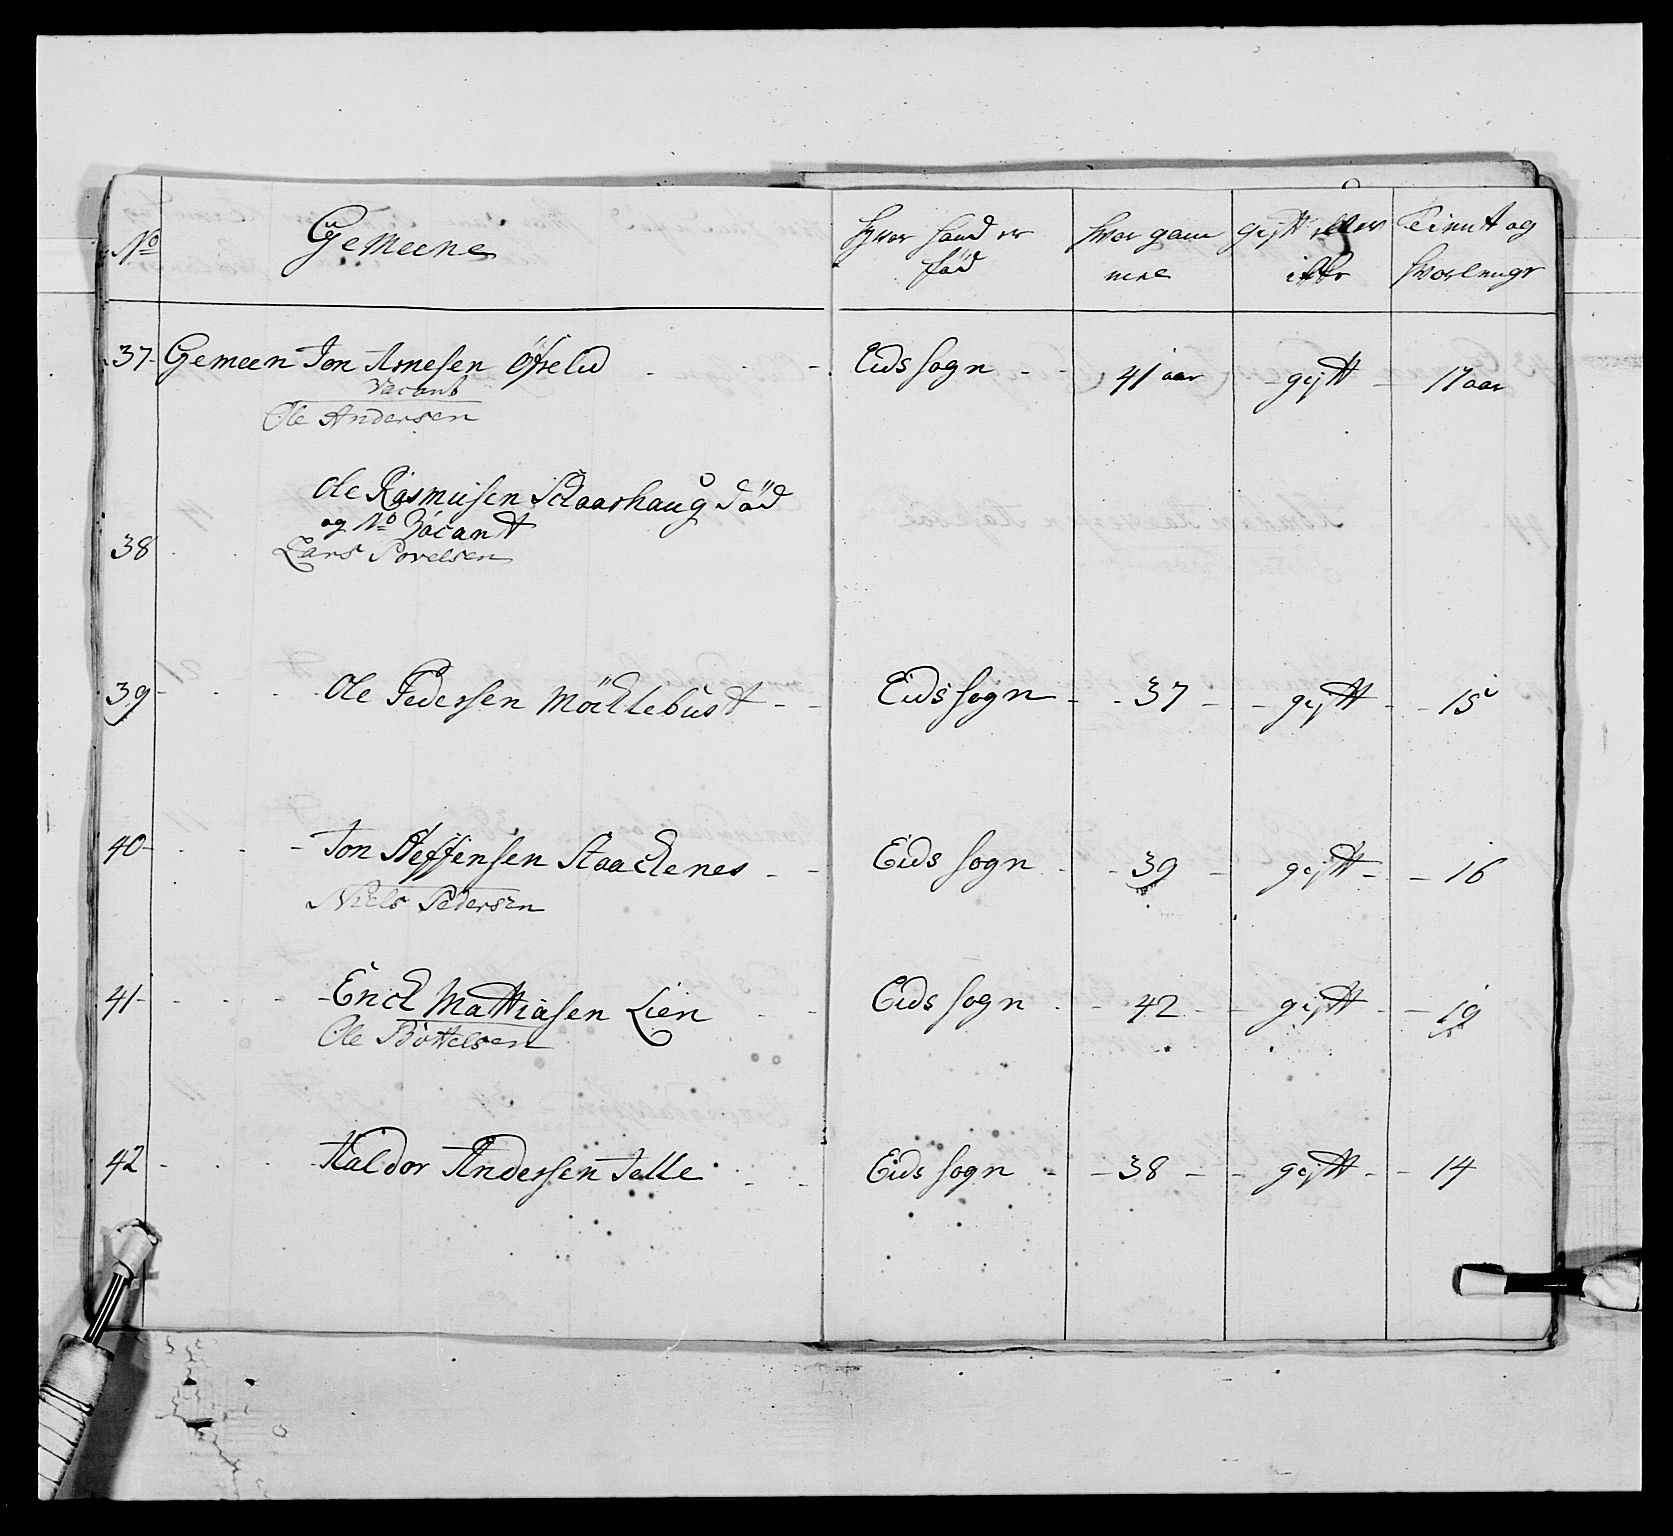 No Gemeene Hvor hand er gift eller Tient og
fød ikke hvorlenge
37 Gemeen Jon Arnesen Öfrelid Eids sogn 41 aar gift 17 aar
Vacant
Ole Andersen
Ole Rasmusen Schaarhaug död
og No Vacant
38 Lars Povelsen
39 Ole Pedersen Möchlebust Eids sogn 37 gift 15
40 Jon Steffensen Staachenes Eids sogn 39 gift 16
Niels Pedersen
41 Erich Mattiasen Lien Eids sogn 42 gift 19
Ole Bottelsen
42 Haldor Andersen Telle Eids sogn 38 gift 14